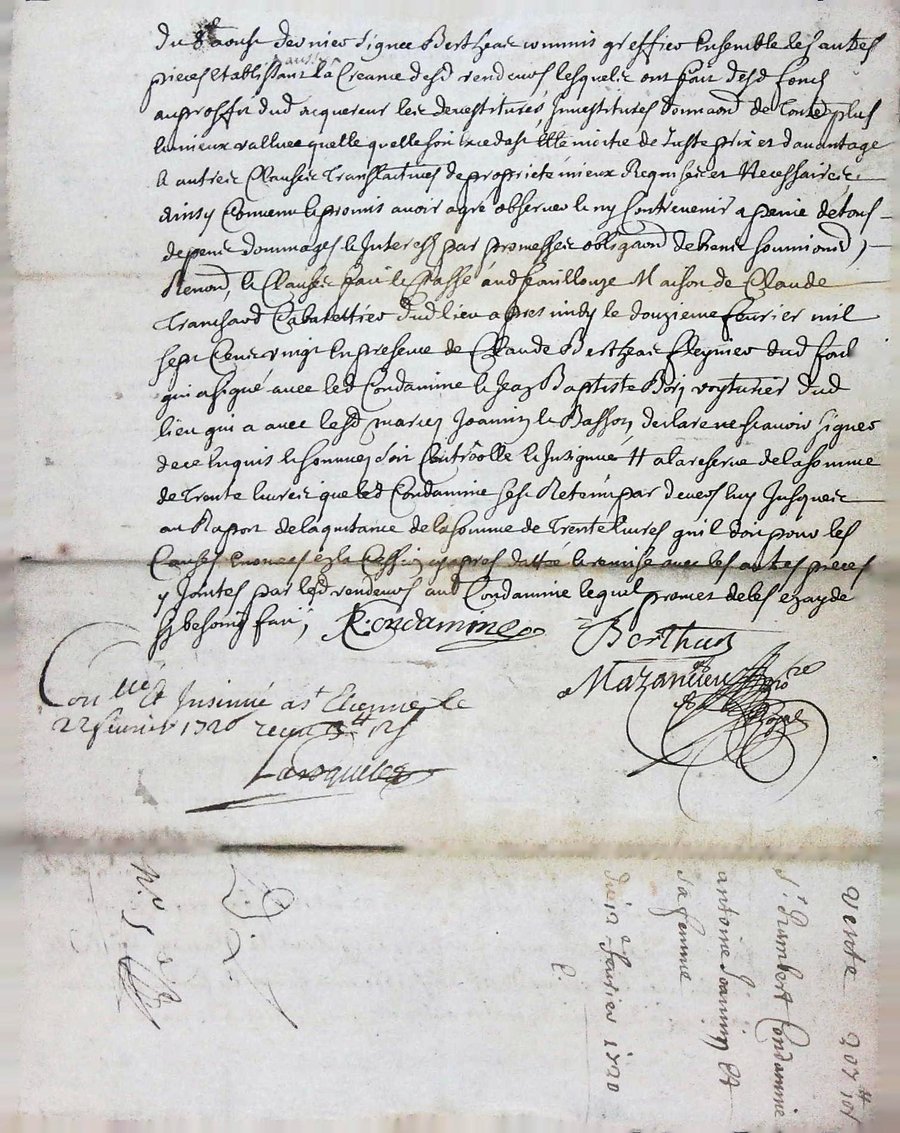 du 8e aoust dernier signee Berthear commis greffier Ensemble les autres
pieces Etablissant la Creance desd vendeurs lesquels ont fait desd fonds
au proffit dud acquereur les devestitures, Investitures donnaond de tousd plus
la mieux vallue quelle quelle soit Excedast Elle moitie de Juste prix et davantage
& autres Clauses Translactives de proprieté mieux Requises et Necessaires,
ainsy Convenu & promis avoir agre observer & ny Contrevenir a peine de tous
depens dommages & Interests par promesses obligaond de biens soumiond,
Renond, & Clauses fait & Passé aud Maison de Claude
Tranchard Cabarettier dud lieu apres midy le douzieme fevrier mil
sept Cens vingt En presence de Claude Berthear dud
qui a signé avec led Condamine & Jean Baptiste Bory voyturier dud
lieu qui a avec lesd marcq Joannin & Basson declare ne scavoir signer
de ce Enquis & sommes soit Controolle & Insinué # a la reserve de la somme
de Trente livres que led Condamine sest Retenu par devers luy Jusques
au Raport de la quitance de la somme de Trente livres quil doit pour les
Causes Enoncees En la Cession cy apres dattée & remise avec les autres pieces
y Jointes par lesd vendeurs aud Condamine lequel promet de les En ayder
sy besoing fait, R. Condamine Berthear
Mazandieu no.re
Royal
Con.lle Et Insinué a st Etienne le
22 fevrier 1720 receu
Laroquette
Vente 207# 10s
Sr Rambert Condamine
antoine Joannin Et
sa femme
du 12e fevrier 1720
C.
N.o 5